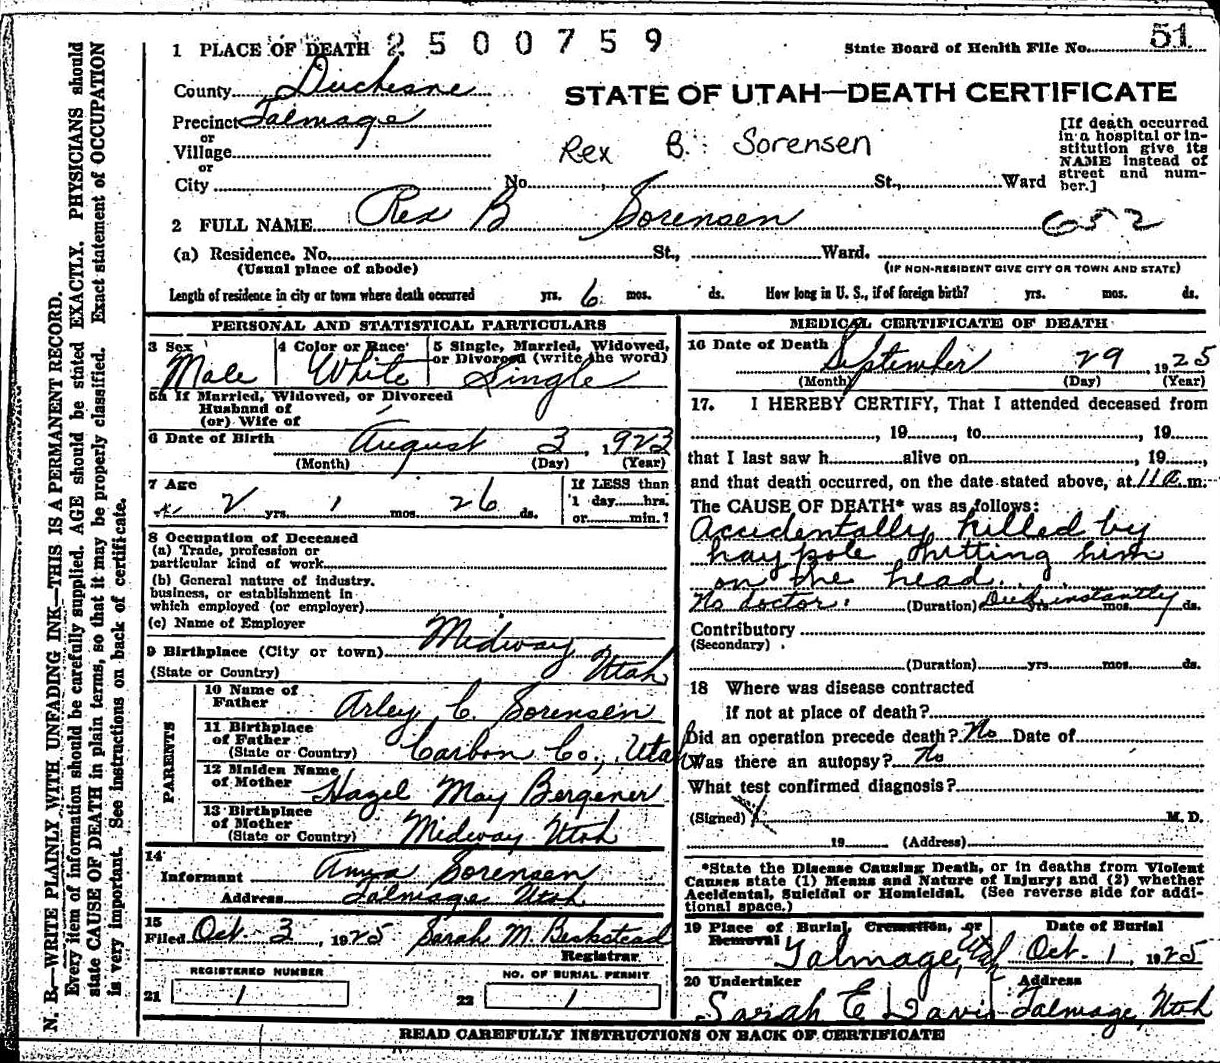 N. B.—WRITE PLAINLY WITH UNFADING INK—THIS IS A PERMANENT RECORD.
Every item of information should be carefully supplied. AGE should be stated EXACTLY. PHYSICIANS should
state CAUSE OF DEATH in plain terms, so that it may be properly classified. Exact statement of OCCUPATION
is very important. See instructions on back of certificate.
1 PLACE OF DEATH 2500759
State Board of Health File No. 51
County Duchesne
STATE OF UTAH—DEATH CERTIFICATE
Precinct Talmage
or
Village
or
City
Rex B. Sorensen
[If death occurred
in a hospital or in-
stitution give its
NAME instead of
street and num-
ber.]
No. St., Ward
2 FULL NAME Rex B Sorensen 652
(a) Residence. No. St., Ward.
(Usual place of abode) (IF NON-RESIDENT GIVE CITY OR TOWN AND STATE)
Length of residence in city or town where death occurred yrs. 6 mos. ds. How long in U. S., if of foreign birth? yrs. mos. ds.
PERSONAL AND STATISTICAL PARTICULARS
3 Sex
Male
4 Color or Race
White
5 Single, Married, Widowed,
or Divorced (write the word)
Single
5a If Married, Widowed, or Divorced
Husband of
(or) Wife of
6 Date of Birth August 3, 1923
(Month) (Day) (Year)
7 Age
2 yrs. 1 mos. 26 ds.
If LESS than
1 day hrs.
or min.?
8 Occupation of Deceased
(a) Trade, profession or
particular kind of work
(b) General nature of industry,
business, or establishment in
which employed (or employer)
(c) Name of Employer
9 Birthplace (City or town) Midway
(State or Country) Utah
PARENTS
10 Name of
Father Arley C. Sorensen
11 Birthplace
of Father
(State or Country) Carbon Co., Utah
12 Maiden Name
of Mother Hazel May Bergener
13 Birthplace
of Mother
(State or Country) Midway Utah
14
Informant Sorensen
Address Talmage Utah
15
Filed Oct 3, 1925 Sarah M. Beckstead
Registrar
REGISTERED NUMBER
21 1
NO. OF BURIAL PERMIT
22 1
MEDICAL CERTIFICATE OF DEATH
16 Date of Death September 29, 1925
(Month) (Day) (Year)
17. I HEREBY CERTIFY, That I attended deceased from
, 19 , to , 19
that I last saw h alive on , 19 ,
and that death occurred, on the date stated above, at 11 a m.
The CAUSE OF DEATH* was as follows:
Accidentally killed by
hay pole hitting him
on the head.
No doctor. (Duration) Died instantly yrs. mos. ds.
Contributory
(Secondary)
(Duration) yrs. mos. ds.
18 Where was disease contracted
if not at place of death?
Did an operation precede death? No Date of
Was there an autopsy? No
What test confirmed diagnosis?
(Signed) M. D.
19 (Address)
*State the Disease Causing Death, or in deaths from Violent
Causes state (1) Means and Nature of Injury; and (2) whether
Accidental, Suicidal or Homicidal. (See reverse side for addi-
tional space.)
19 Place of Burial, Cremation, or
Removal Talmage, Utah
Date of Burial
Oct. 1, 1925
20 Undertaker
Sarah E Davis
Address
Talmage, Utah
READ CAREFULLY INSTRUCTIONS ON BACK OF CERTIFICATE